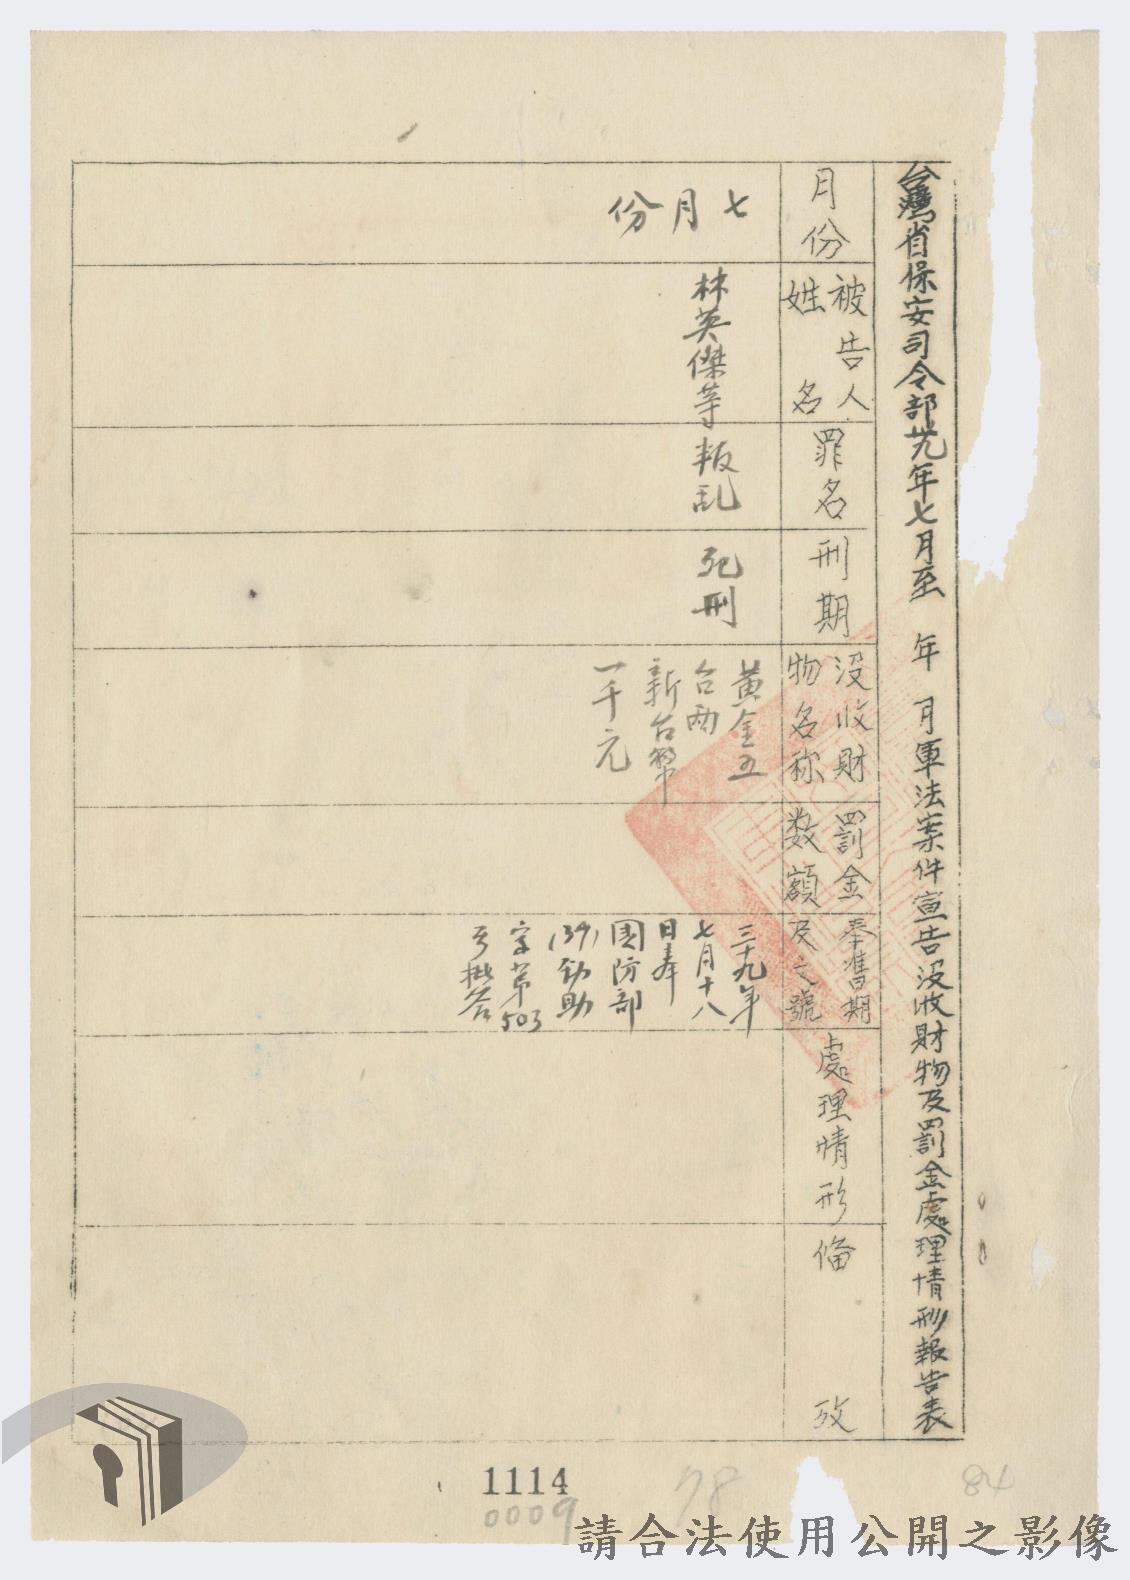 台灣省保安司令部卅九年七月至　年　月軍法案件宣告沒收財物及罰金處理情形報告表
月份
被告人
姓名
罪名
刑期
沒收財
物名称
罰金
数額
奉准日期
及文號
處理情形
俻攷
七月份
林英傑等
叛乱
死刑
黃金五
台両
新台幣
一千元
三十九年
七月十八
日奉
國防部
(39)勁助
字第503
号批答
1114
0009
78
84
請合法使用公開之影像